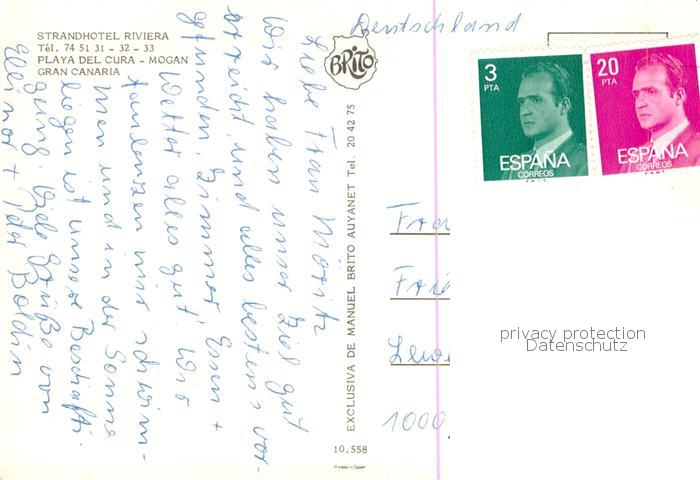 STRANDHOTEL RIVIERA
Tél. 74 51 31 - 32 - 33
PLAYA DEL CURA - MOGAN
GRAN CANARIA
BRITO
EXCLUSIVA DE MANUEL BRITO AUYANET Tel. 20 42 75
10.558
Printed in Spain
Liebe Frau Moritz
Wir haben unser Ziel gut
erreicht und alles bestens vor-
gefunden. Zimmer Essen +
Wetter alles gut! Wir
faulenzen nur schwim-
men und in der Sonne
liegen ist unsere Beschäfti-
gung. Viele Grüße von
Ellinor + Boldin
Deutschland
3
PTA
ESPAÑA
CORREOS
20
PTA
ESPAÑA
CORREOS
Frau
1000
privacy protection
Datenschutz